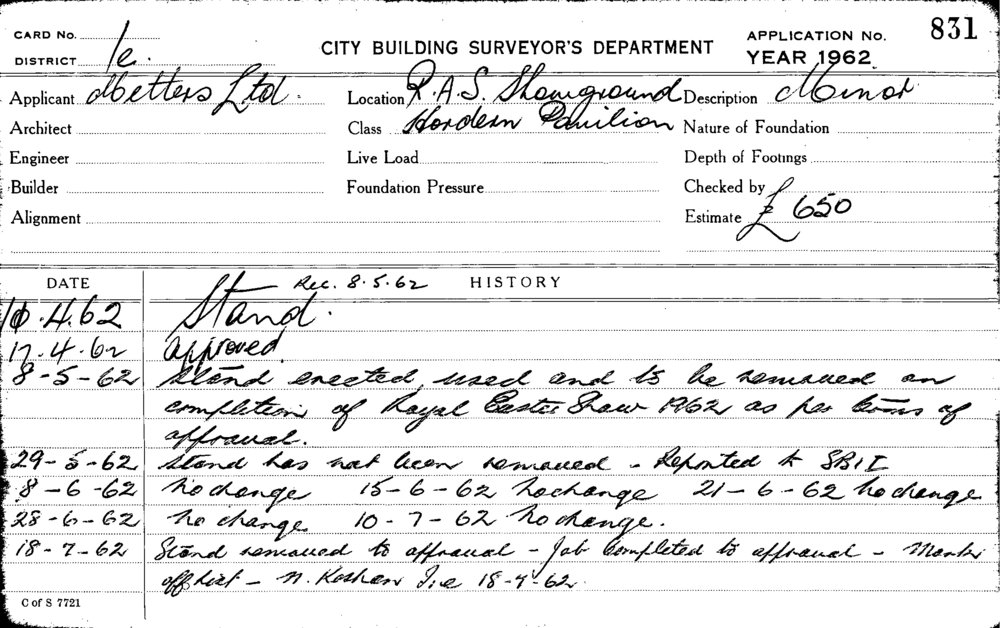 CARD No.
CITY BUILDING SURVEYOR'S DEPARTMENT
APPLICATION No. 831
DISTRICT 1c.
YEAR 1962
Applicant Metters Ltd.
Location R.A.S. Showground
Description Minor
Architect
Class Hordern Pavilion
Nature of Foundation
Engineer
Live Load
Depth of Footings
Builder
Foundation Pressure
Checked by
Alignment
Estimate £ 650
DATE
Rec. 8.5.62 HISTORY
10.4.62 Stand.
17.4.62 approved.
8-5-62 Stand erected, used and to be removed on
completion of Royal Easter Show 1962 as per terms of
approval.
29-5-62 Stand has not been removed - Reported to SBII
8-6-62 no change 15-6-62 no change 21-6-62 no change
28-6-62 no change 10-7-62 no change.
18-7-62 Stand removed to approval - Job completed to approval -
off list - N. 18-7-62.
C of S 7721